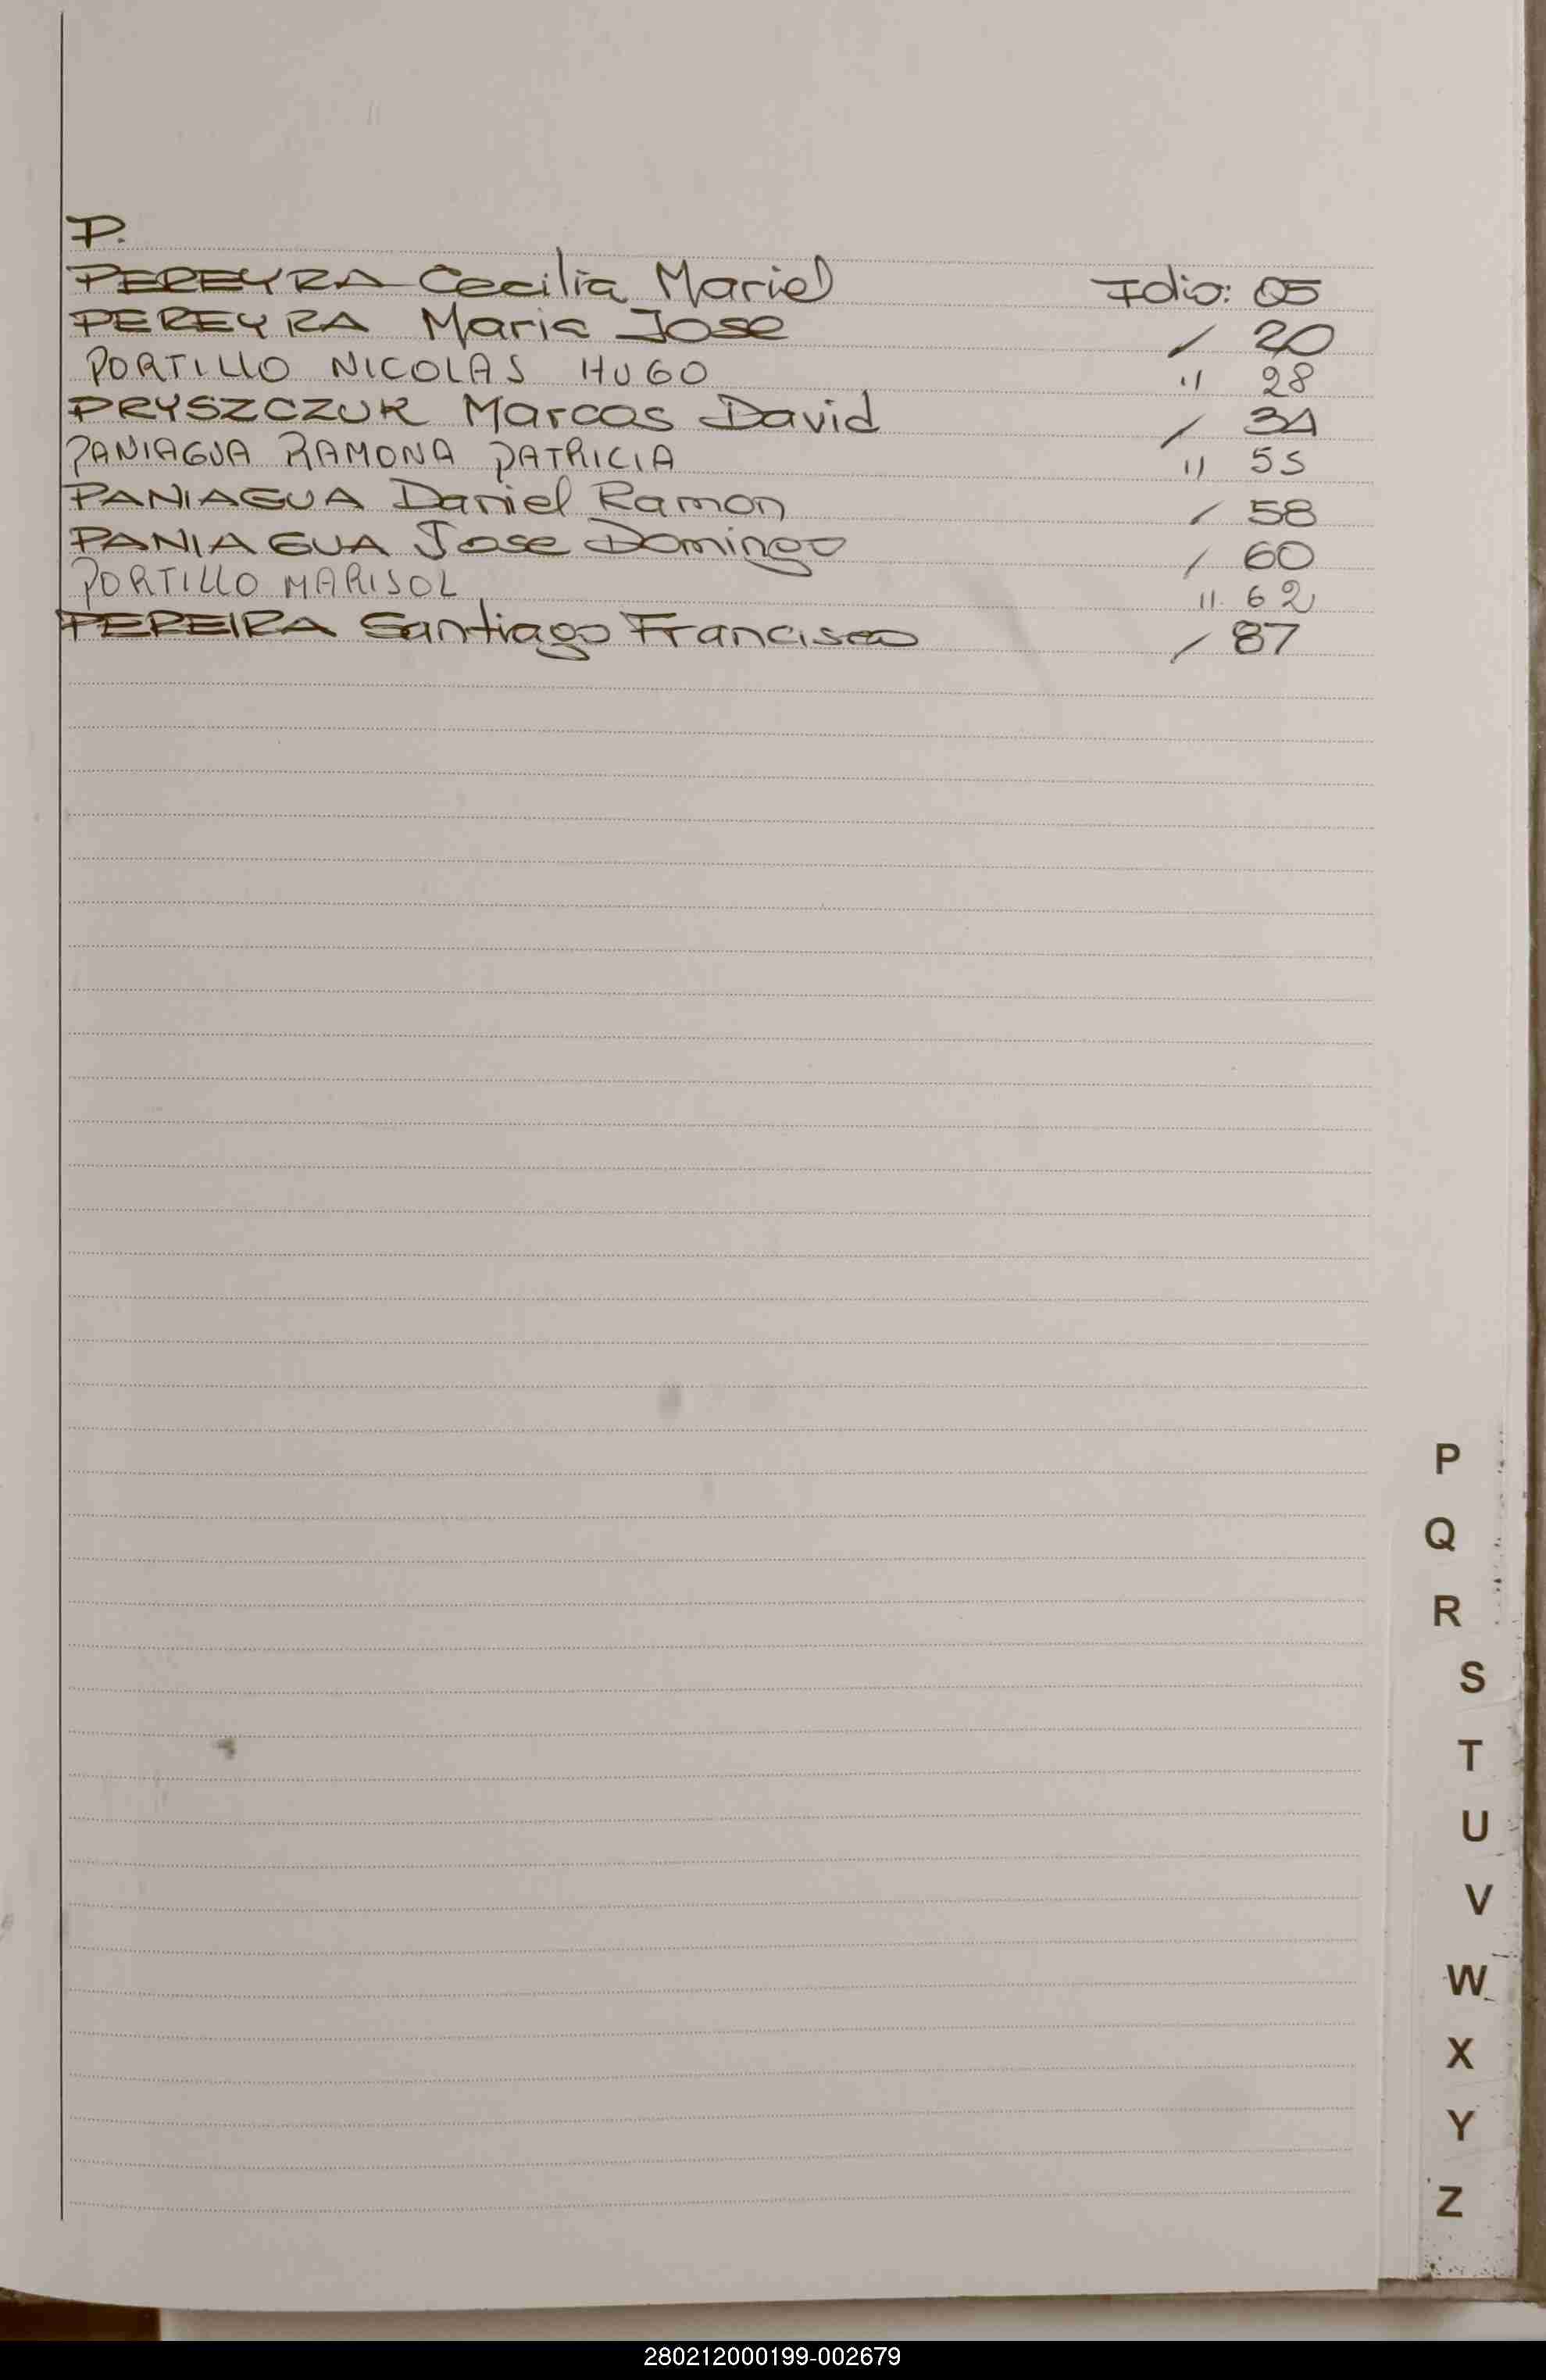 P.
PEREYRA Cecilia Mariel Folio: 05
PEREYRA Maria Jose / 20
PORTILLO NICOLAS HUGO " 28
PRYSZCZUK Marcos David / 34
PANIAGUA RAMONA PATRICIA " 55
PANIAGUA Daniel Ramon / 58
PANIAGUA Jose Domingo / 60
PORTILLO MARISOL " 62
PEREIRA Santiago Francisco / 87
P
Q
R
S
T
U
V
W
X
Y
Z
280212000199-002679